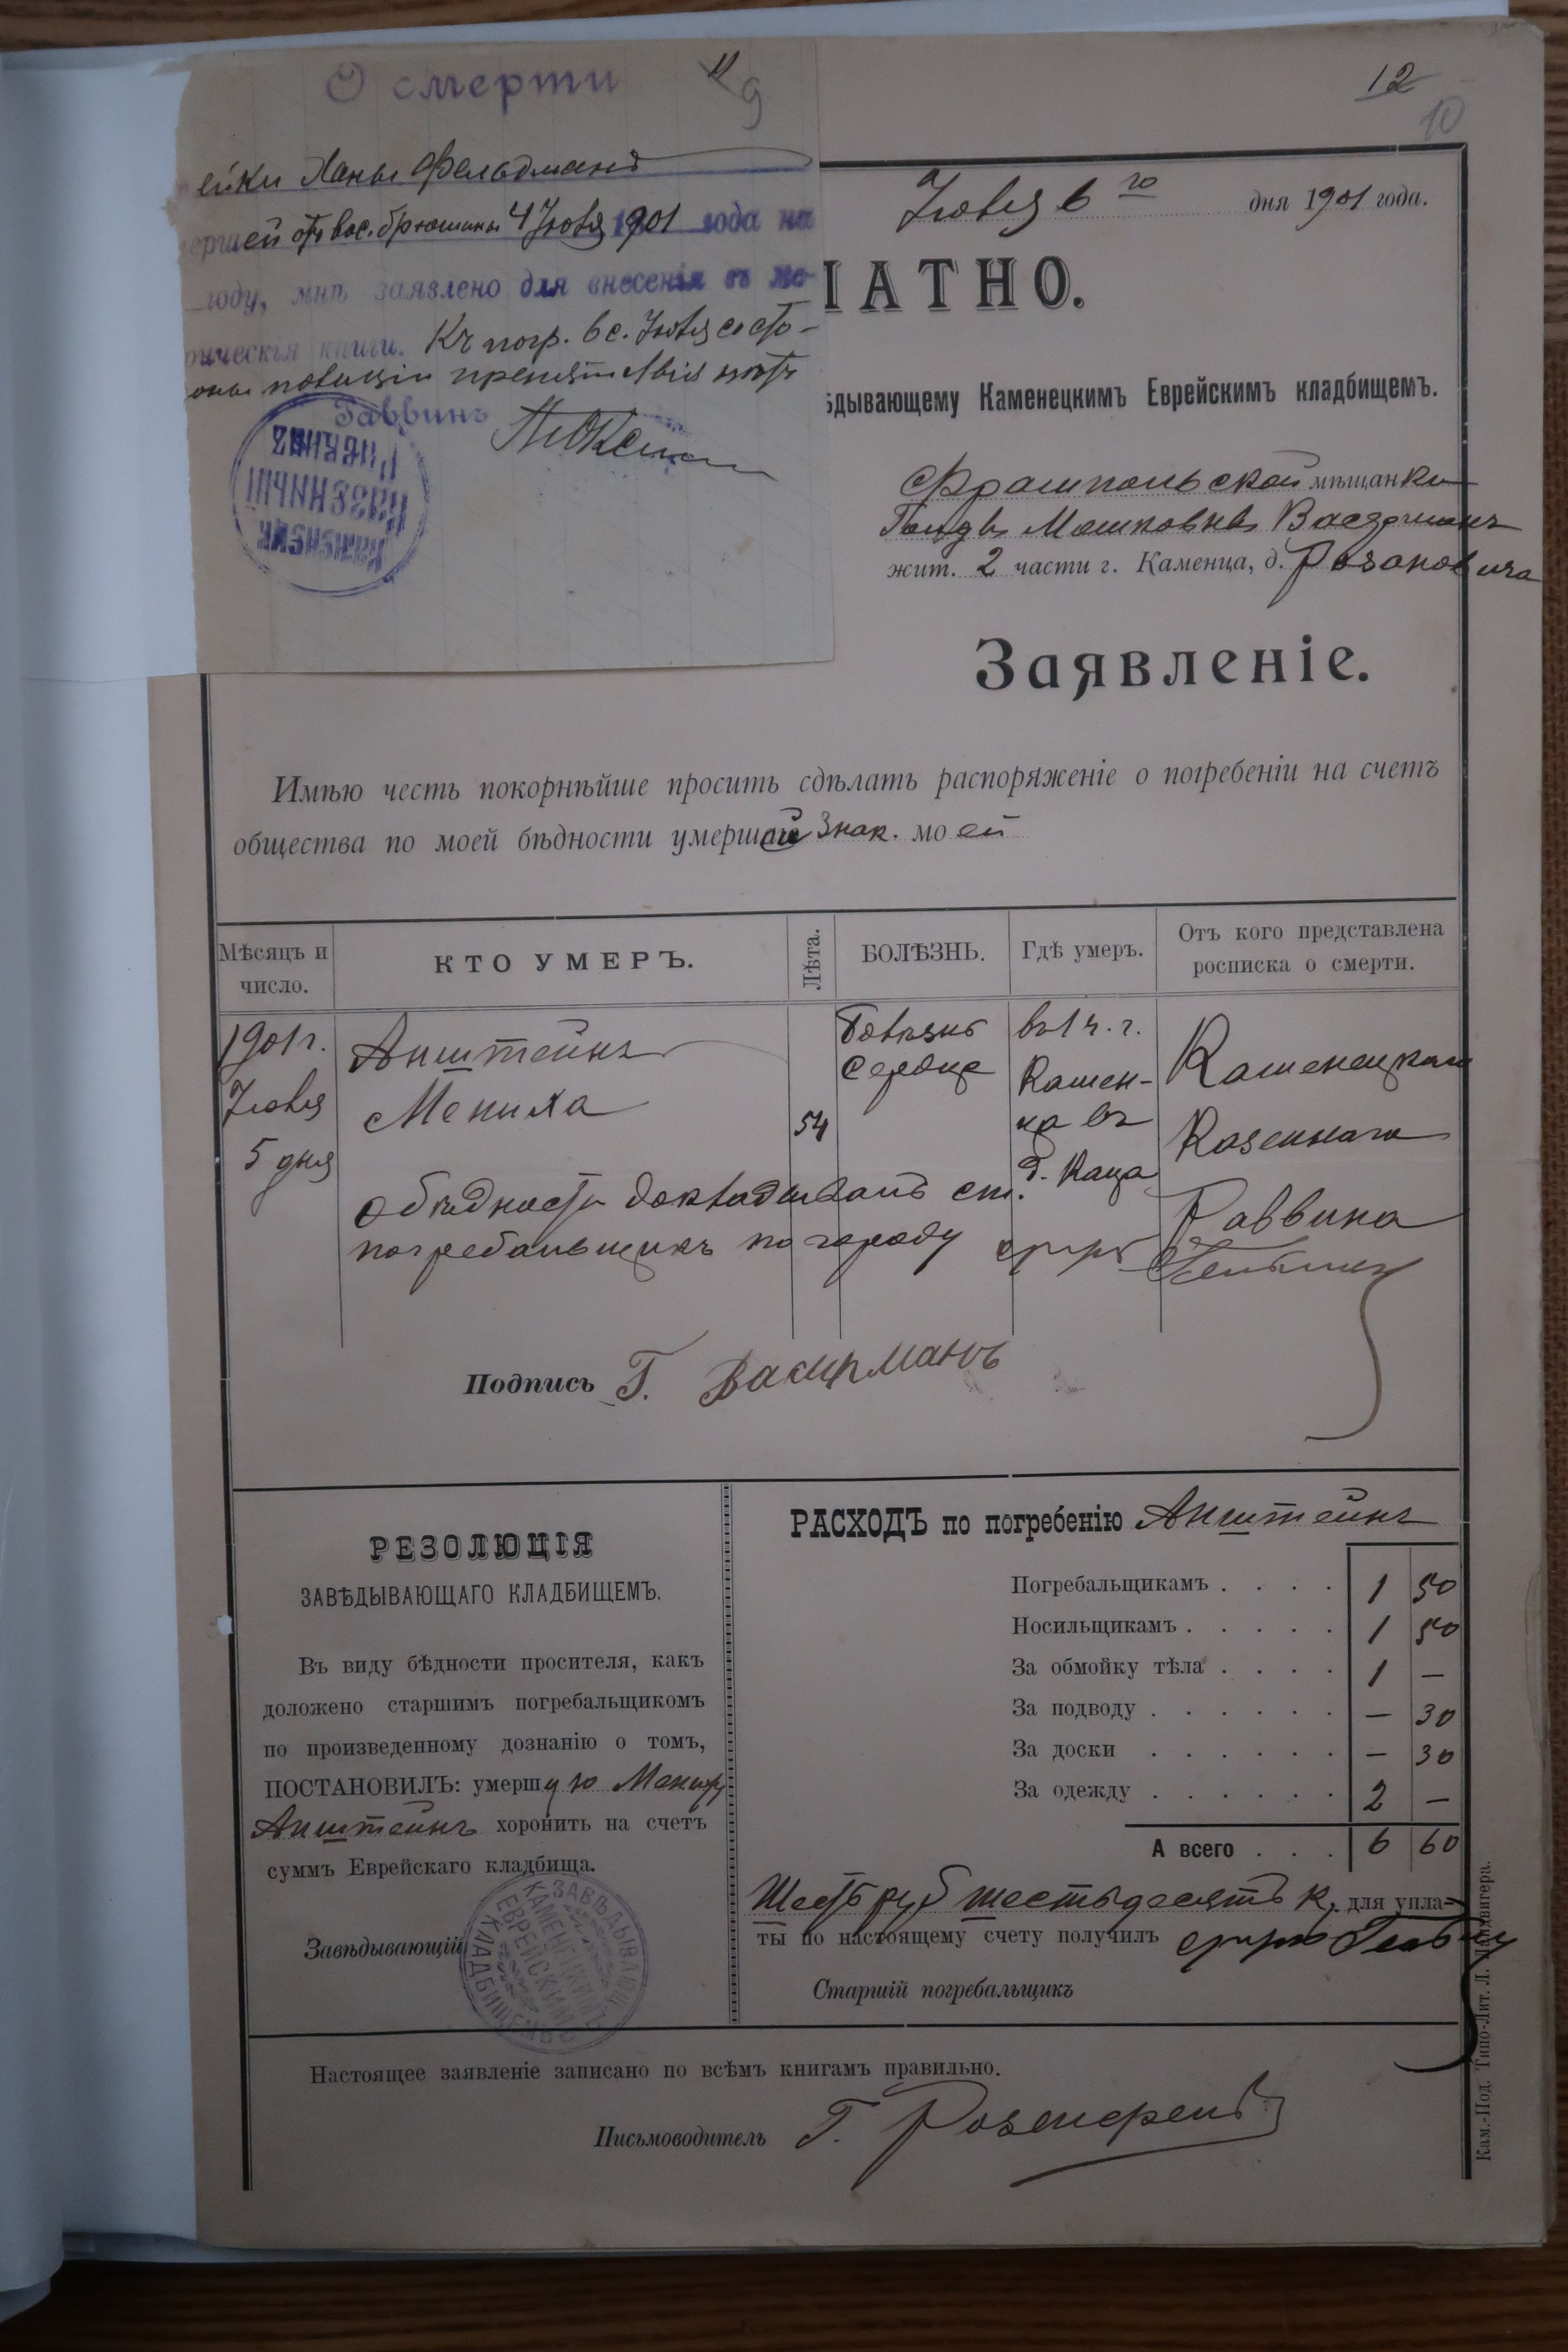 О смерти
ейки Ханы Фельдманъ
ершей отъ вос. брюшины 4 Іюля 1901 года на
году, мнѣ заявлено для внесенія въ ме-
рическія книги. Къ погр. 6 с. Іюля со сто-
оны полиціи препятствія нѣтъ
Раввинъ
КАМЕНЕЦК
КАЗЕННЫЙ
РАВВИНЪ
12
10
Іюля 6 го дня 1901 года.
ЛАТНО.
ѣдывающему Каменецкимъ Еврейскимъ кладбищемъ.
Фрампольской мѣщанки
Голды Мошковны Васерманъ
жит. 2 части г. Каменца, д.
Заявленіе.
Имѣю честь покорнѣйше просить сдѣлать распоряженіе о погребеніи на счетъ
общества по моей бѣдности умершей знак. моей
Мѣсяцъ и число.
КТО УМЕРЪ.
Лѣта.
БОЛѢЗНЬ.
Гдѣ умеръ.
Отъ кого представлена росписка о смерти.
1901 г.
Іюля
5 дня
Анштейнъ
Мениха
54
Болѣзнь
Сердца
въ 1 ч. г.
Камен-
ца въ
д. Каца
Каменецкаго
Казеннаго
Раввина
О бѣдности докладывалъ ст.
погребальщикъ по городу
Подпись Г. Васирманъ
РЕЗОЛЮЦІЯ
ЗАВѢДЫВАЮЩАГО КЛАДБИЩЕМЪ.
Въ виду бѣдности просителя, какъ
доложено старшимъ погребальщикомъ
по произведенному дознанію о томъ,
ПОСТАНОВИЛЪ: умершую Мениху
Анштейнъ хоронить на счетъ
суммъ Еврейскаго кладбища.
Завѣдывающій
ЗАВѢДЫВАЮЩ.
КАМЕНЕЦКИМЪ
ЕВРЕЙСКИМЪ
КЛАДБИЩЕМЪ
РАСХОДЪ по погребенію Анштейнъ
Погребальщикамъ . . . . 1 50
Носильщикамъ . . . . . 1 50
За обмойку тѣла . . . . 1 —
За подводу . . . . . . — 30
За доски . . . . . . — 30
За одежду . . . . . . 2 —
А всего . . . 6 60
Шесть руб шестьдесятъ к. для упла-
ты по настоящему счету получилъ
Старшій погребальщикъ
Настоящее заявленіе записано по всѣмъ книгамъ правильно.
Письмоводитель Г.
Кам.-Под. Типо-Лит. Л.